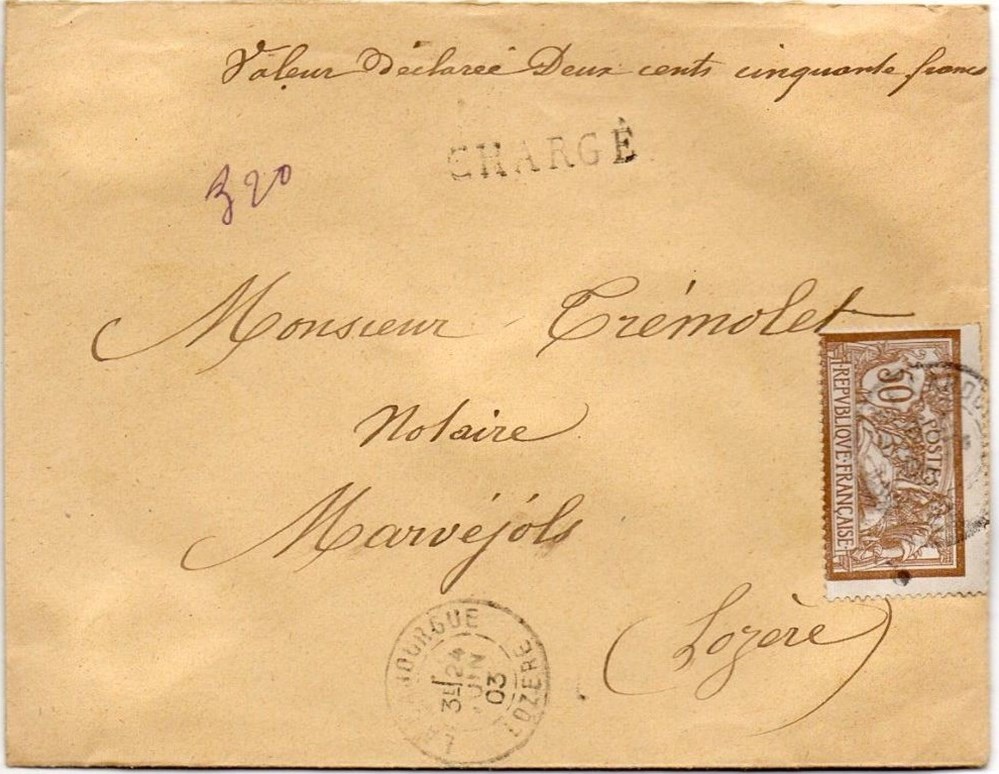 Valeur Déclarée Deux cents cinquante francs
CHARGÉ
320
Monsieur Trémolet
Notaire
Marvéjols
(Lozère)
50
POSTES
REPVBLIQVE·FRANÇAISE
LOZERE
3E
24
JUIN
03